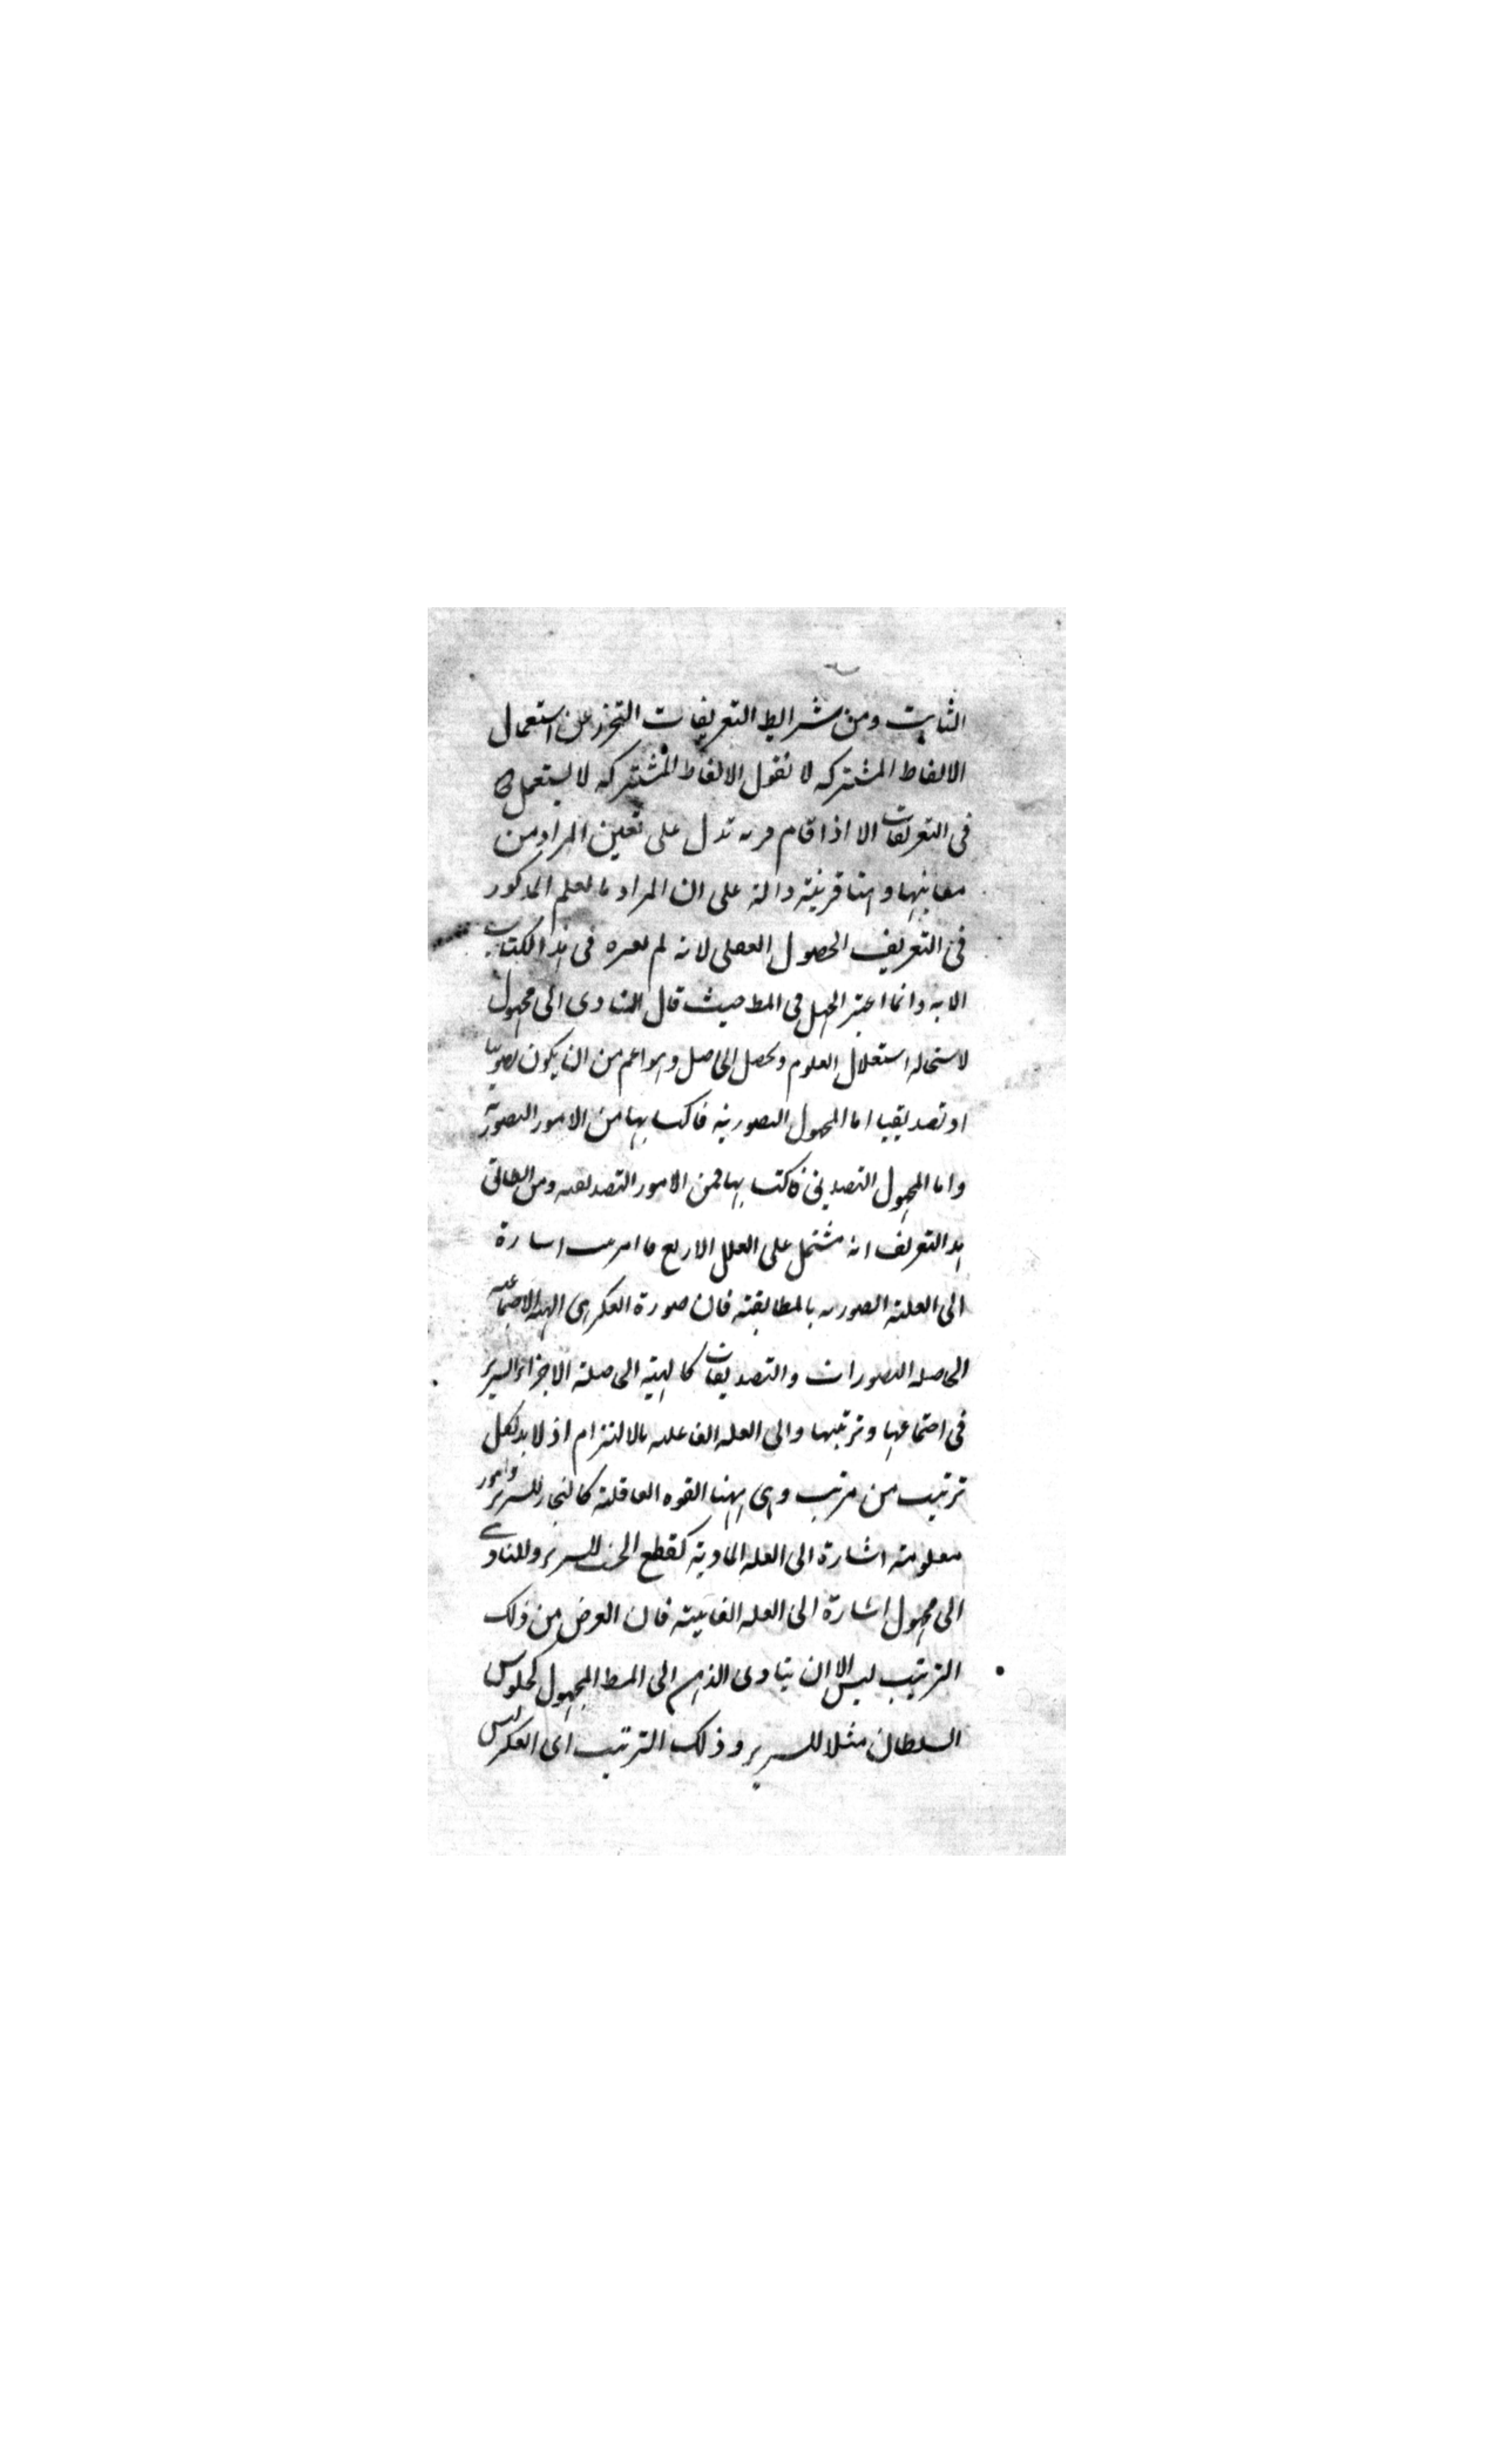 الثابت ومن شرايط التعريفات التحرز عن استعمال
الالفاظ المشتركه لا نقول الالفاظ المشتركه لا يستعمل
فى التعريفات الا اذا قام قرينه تدل على تعيين المراد من
معانيها وهنا قرينة دالة على ان المراد بالعلم المذكور
فى التعريف الحصول العقلى لانه لم يفسره فى هذا الكتاب
الا به وانما اعتبر الجهل فى المط حيث قال للتادى الى مجهول
لاستحاله استعلال العلوم وتحصل الحاصل وهو اعم من ان يكون تصوريا
او تصديقيا اما المجهول التصورية فاكتسابها من الامور التصورية
واما المجهول التصديقى فاكتسابها فمن الامور التصديقيه ومن لطائف
هذا التعريف انه مشتمل على العلل الاربع فالترتيب اشارة
الى العلة الصوريه بالمطابقة فان صورة الفكر هى الهيئة الاجتماعيه
الحاصله للتصورات والتصديقات كالهيئة الحاصلة الاجزاء السرير
فى اجتماعها وترتيبها والى العله الفاعليه بالالتزام اذ لا بد لكل
ترتيب من مرتب وهى ههنا القوه العاقلة كالنجار للسرير وامور
معلومة اشارة الى العله المادية كقطع الخشب للسرير وللتادى
الى مجهول اشارة الى العله الغائية فان الغرض من ذلك
الترتيب ليس الا ان يتادى الذهن الى المط المجهول كجلوس
السلطان مثلا للسرير وذلك الترتيب اى الفكر ليس